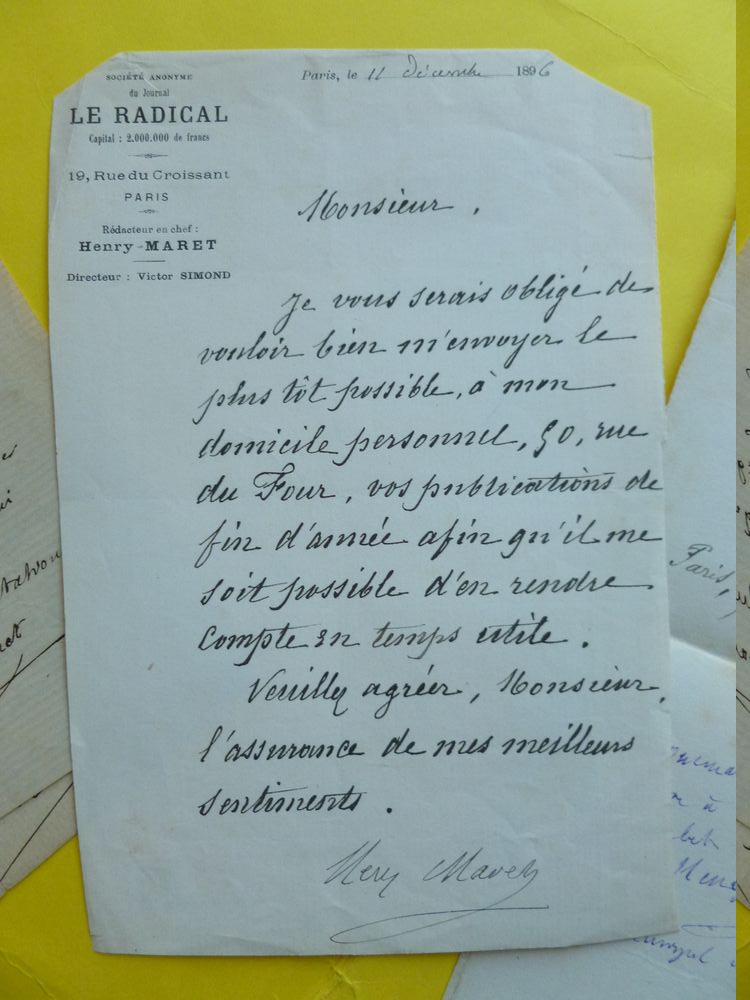 SOCIÉTÉ ANONYME
du Journal
LE RADICAL
Capital : 2.000.000 de francs
19, Rue du Croissant
PARIS
Rédacteur en chef :
Henry MARET
Directeur : Victor SIMOND
Paris, le 11 décembre 1896
Monsieur,
Je vous serais obligé de
vouloir bien m'envoyer le
plus tôt possible, à mon
domicile personnel, 50, rue
du Four, vos publications de
fin d'année afin qu'il me
soit possible d'en rendre
compte en temps utile.
Veuillez agréer, Monsieur,
l'assurance de mes meilleurs
sentiments.
Paris,